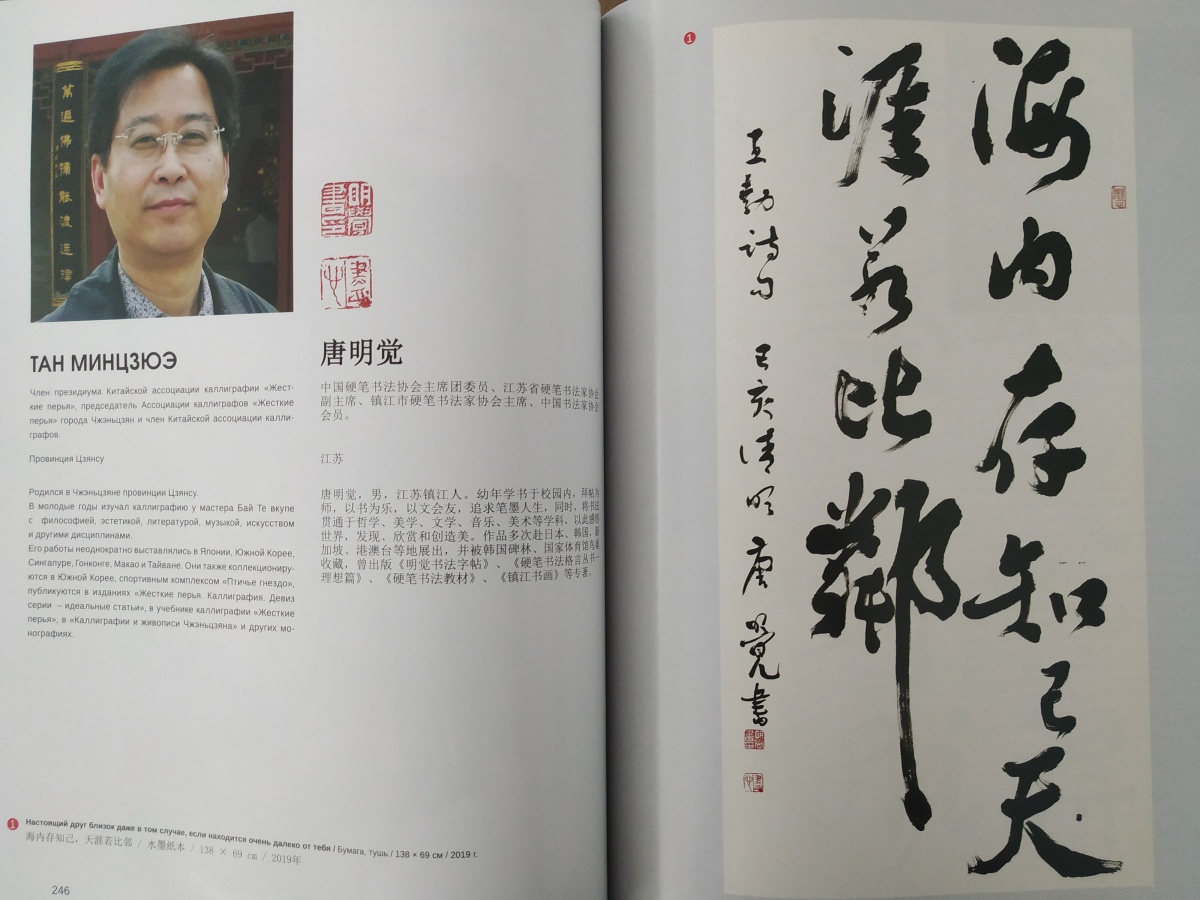 萬遍佛彌陀渡迷津
ТАН МИНЦЗЮЭ
Член президиума Китайской ассоциации каллиграфии «Жест-
кие перья», председатель Ассоциации каллиграфов «Жесткие
перья» города Чжэньцзян и член Китайской ассоциации калли-
графов.
Провинция Цзянсу
Родился в Чжэньцзяне провинции Цзянсу.
В молодые годы изучал каллиграфию у мастера Бай Те вкупе
с философией, эстетикой, литературой, музыкой, искусством
и другими дисциплинами.
Его работы неоднократно выставлялись в Японии, Южной Корее,
Сингапуре, Гонконге, Макао и Тайване. Они также коллекциониру-
ются в Южной Корее, спортивным комплексом «Птичье гнездо»,
публикуются в изданиях «Жесткие перья. Каллиграфия. Девиз
серии – идеальные статьи», в учебнике каллиграфии «Жесткие
перья», в «Каллиграфии и живописи Чжэньцзяна» и других мо-
нографиях.
唐明觉
中国硬笔书法协会主席团委员、江苏省硬笔书法家协会
副主席、镇江市硬笔书法家协会主席、中国书法家协会
会员。
江苏
唐明觉，男，江苏镇江人。幼年学书于校园内，拜帖为
师，以书为乐，以文会友，追求笔墨人生，同时，将书法
贯通于哲学、美学、文学、音乐、美术等学科，以此感悟
世界，发现、欣赏和创造美。作品多次赴日本、韩国、新
加坡、港澳台等地展出，并被韩国碑林、国家体育馆鸟巢
收藏，曾出版《明觉书法字帖》、《硬笔书法格言丛书—
理想篇》、《硬笔书法教材》、《镇江书画》等专著。
1 Настоящий друг близок даже в том случае, если находится очень далеко от тебя / Бумага, тушь / 138 × 69 см / 2019 г.
海内存知己，天涯若比邻 / 水墨纸本 / 138 × 69 cm / 2019年
246
1
海内存知己天
涯若比鄰
王勃詩句 己亥清明 唐明覺書